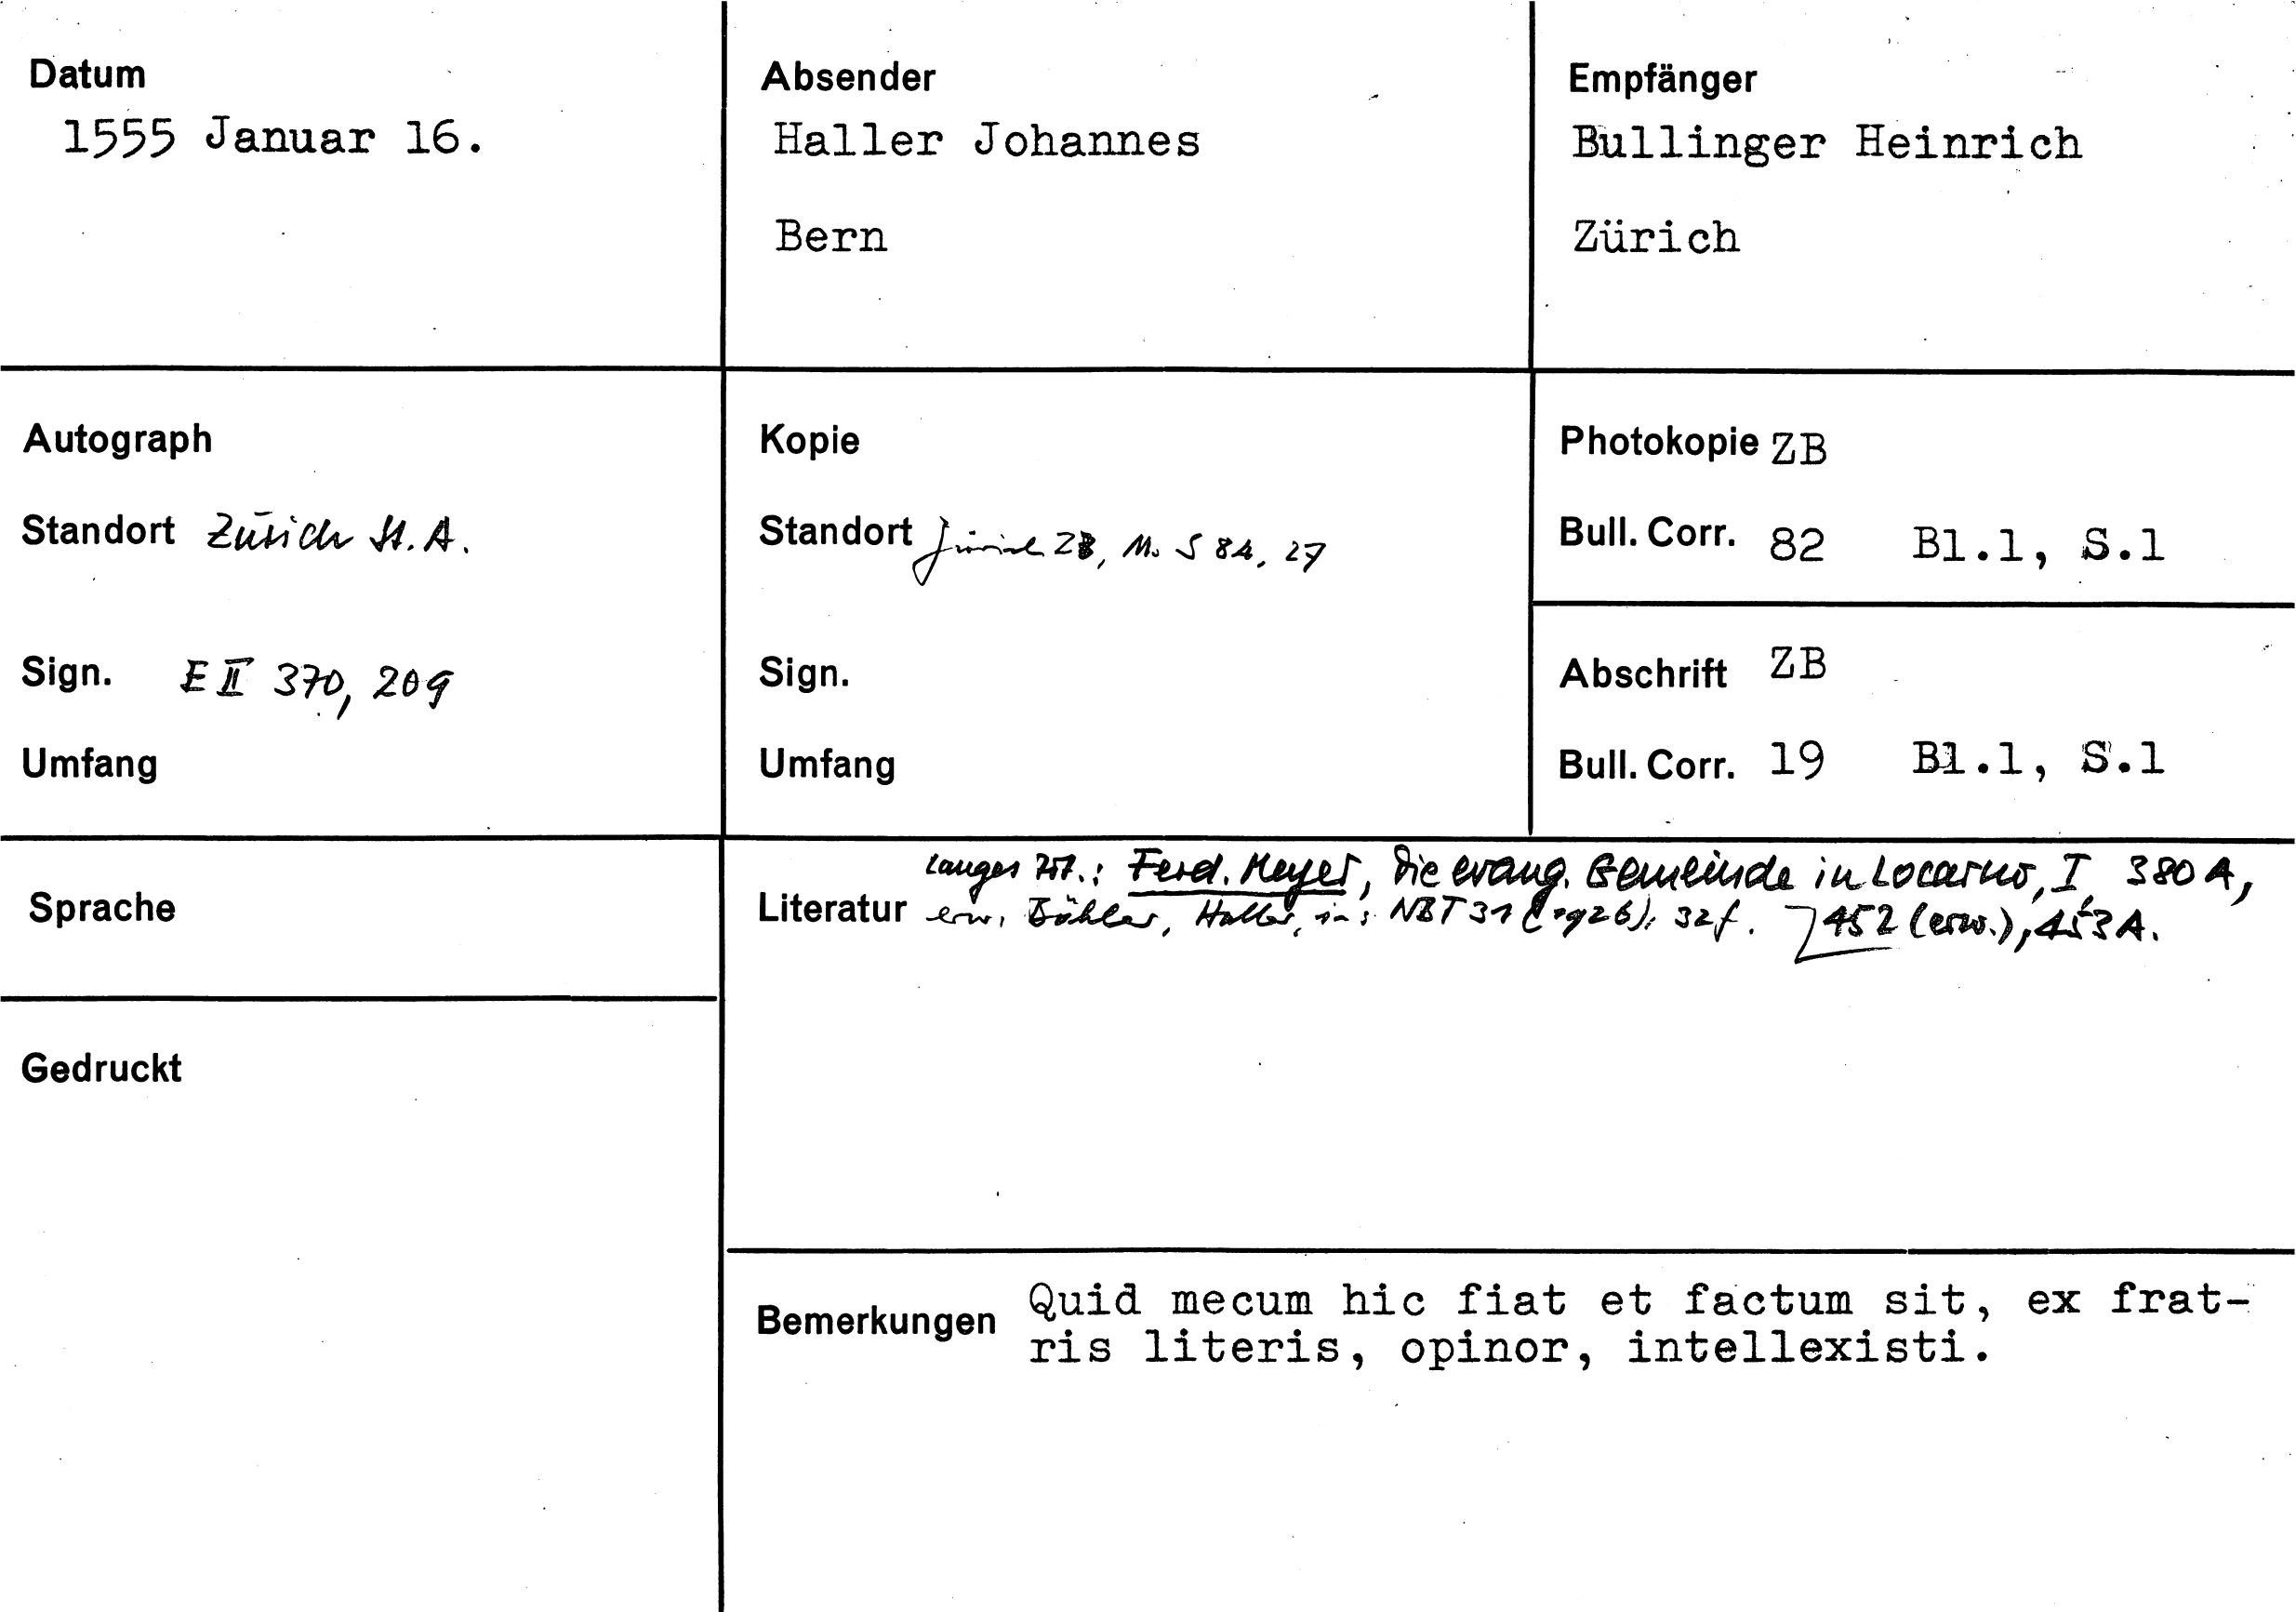 Datum
1555 Januar 16.
Absender
Haller Johannes
Bern
Empfänger
Bullinger Heinrich
Zürich
Autograph
Standort Zürich St.A.
Sign. E II 370, 209
Umfang
Kopie
Standort Zürich ZB, Ms S 84, 27
Sign.
Umfang
Photokopie ZB
Bull. Corr. 82 Bl.1, S.1
Abschrift ZB
Bull. Corr. 19 Bl.1, S.1
Sprache
Gedruckt
Literatur
langes Zit.: Ferd. Meyer, Die evang. Gemeinde in Locarno, I, 380 A,
erw. Bähler, Haller, in: NBT 31 (1926), 32f. 452 (erw.), 453 A.
Bemerkungen
Quid mecum hic fiat et factum sit, ex frat-
ris literis, opinor, intellexisti.